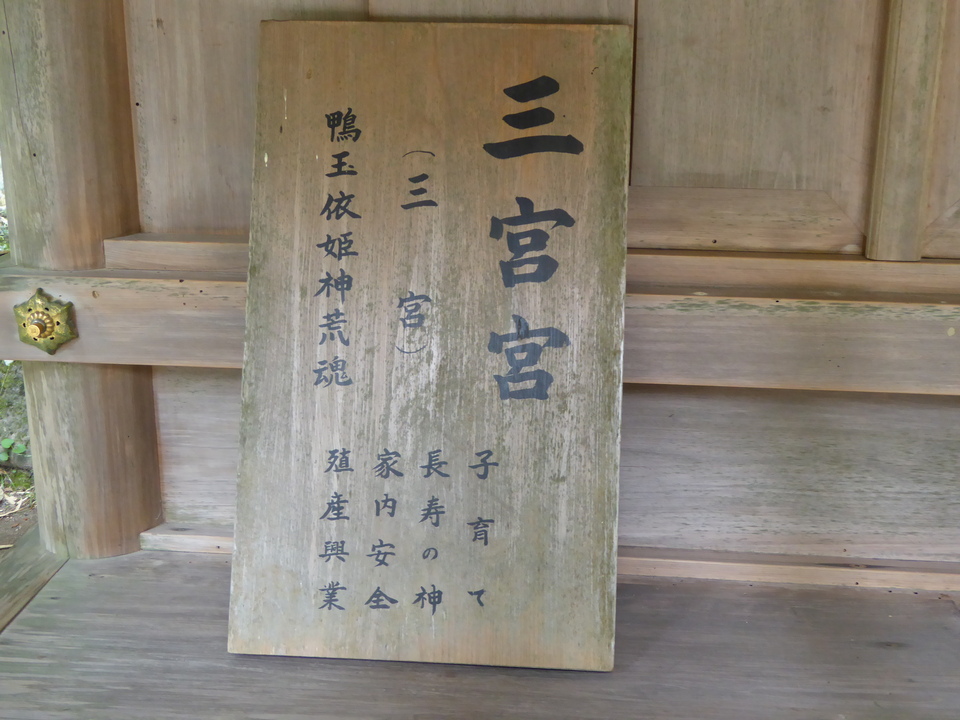 三宮宮
（三宮）
鴨玉依姫神荒魂
子育て
長寿の神
家内安全
殖産興業